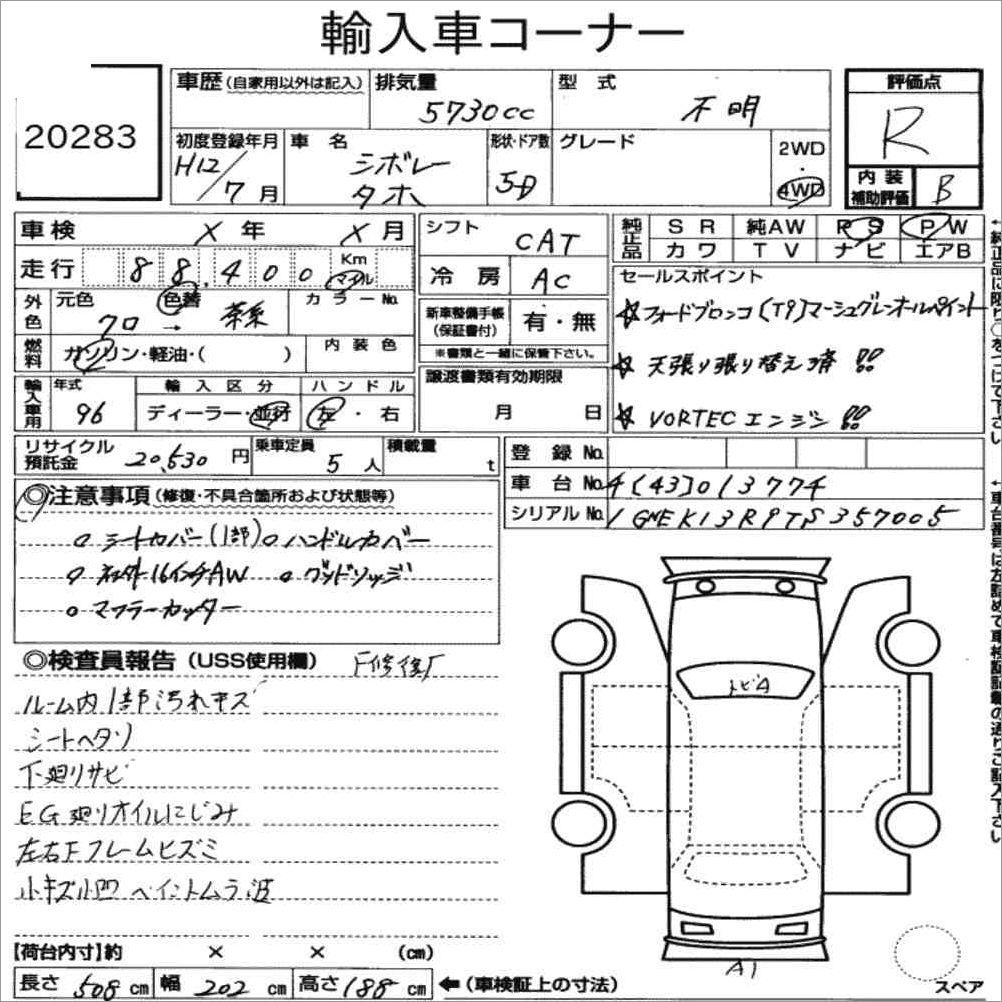 輸入車コーナー
20283
車歴(自家用以外は記入) 排気量 5730cc 型式 不明
評価点 R
初度登録年月 H12/7月 車名 シボレー タホ 形状・ドア数 5D グレード 2WD・4WD
内装補助評価 B
車検 X年 X月
シフト CAT
純正品 SR 純AW PS PW
カワ TV ナビ エアB
走行 88,400 Km マイル
冷房 AC
セールスポイント
☆フォードブロンコ(T9)マーシュグレーンオールペイント
外色 元色 クロ → 色替 茶系 カラーNo.
新車整備手帳(保証書付) 有・無
※書類と一緒に保管下さい。
☆天張り張り替え済!!
燃料 ガソリン・軽油・( ) 内装色
譲渡書類有効期限 月 日
☆VORTECエンジン!!
輸入車用 年式 96 輸入区分 ディーラー・並行 ハンドル 左・右
リサイクル預託金 20,530円 乗車定員 5人 積載量 t
登録No.
車台No. 4(43)013774
シリアルNo. 1GNEK13R9TS357005
◎注意事項(修復・不具合箇所および状態等)
○シートカバー(1部)○ハンドルカバー
○社外16インチAW ○グッドリッジ
○マフラーカッター
◎検査員報告(USS使用欄) F修復有
ルーム内1部汚れキズ
シートヘタリ
下廻りサビ
EG廻りオイルにじみ
左右Fフレームヒズミ
小キズ小凹 ペイントムラ 波
トビA
A1
【荷台内寸】約 × × (cm)
長さ 508cm 幅 202cm 高さ 188cm ←(車検証上の寸法)
スペア
←純正品に限り○をつけて下さい
←車台番号は左詰めで車検証記載の通りご記入下さい